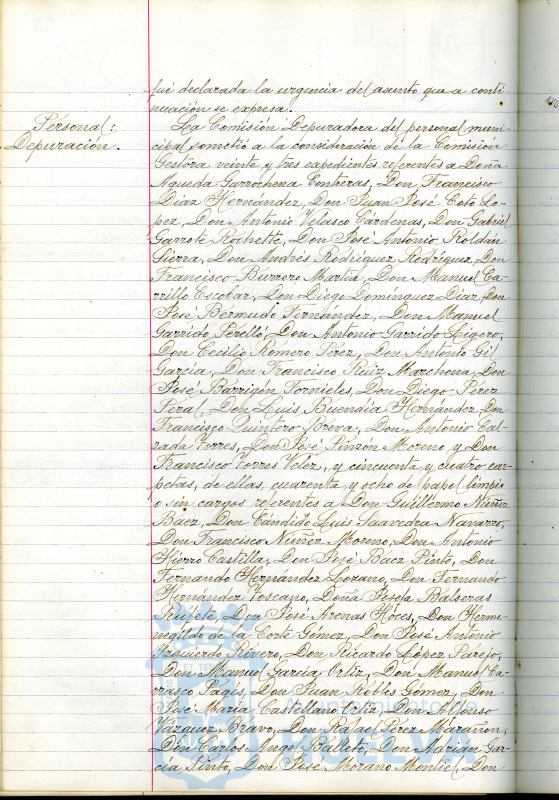 fué declarada la urgencia del asunto que a conti-
nuación se expresa.
Personal:
Depuración.
La Comisión Depuradora del personal muni-
cipal sometió a la consideración de la Comisión
Gestora veinte y tres expedientes referentes a Doña
Agueda Garrochena Contreras, Don Francisco
Díaz Hernández, Don Juan José Coto Ló-
pez, Don Antonio Velasco Cárdenas, Don Gabriel
Garrote Rochette, Don José Antonio Roldán
Sierra, Don Andrés Rodríguez Rodríguez, Don
Francisco Burrero Martín, Don Manuel Ca-
rrillo Escobar, Don Diego Domínguez Díaz, Don
José Bermudo Fernández, Don Manuel
Garrido Perelló, Don Antonio Garrido Ligero,
Don Cecilio Romero Pérez, Don Antonio Gil
García, Don Francisco Ruiz Marchena, Don
José Barrigón Tornieles, Don Diego Pérez
Peral, Don Luis Buendía Hernández, Don
Francisco Quintero Breva, Don Antonio Cal-
zada Torres, Don José Pinzón Moreno y Don
Francisco Torres Vélez, y cincuenta y cuatro car-
petas, de ellas, cuarenta y ocho de papel limpio
o sin cargos referentes a Don Guillermo Núñez
Báez, Don Cándido Luis Saavedra Navarro,
Don Francisco Núñez Moreno, Don Antonio
Hierro Castilla, Don José Báez Pinto, Don
Fernando Hernández Lozano, Don Fernando
Hernández Toscano, Doña Josefa Balseras
Rufete, Don José Arenas Hoces, Don Herme-
negildo de la Corte Gómez, Don José Antonio
Izquierdo Rivero, Don Ricardo López Parejo,
Don Manuel García Ortiz, Don Manuel Ca-
rrasco Pagés, Don Juan Robles Gómez, Don
José María Castellano Ortiz, Don Alfonso
Vázquez Bravo, Don Rafael Pérez Marañón,
Don Carlos Angel Balleto, Don Adrián Gar-
cía Pinto, Don José Morano Montiel, Don